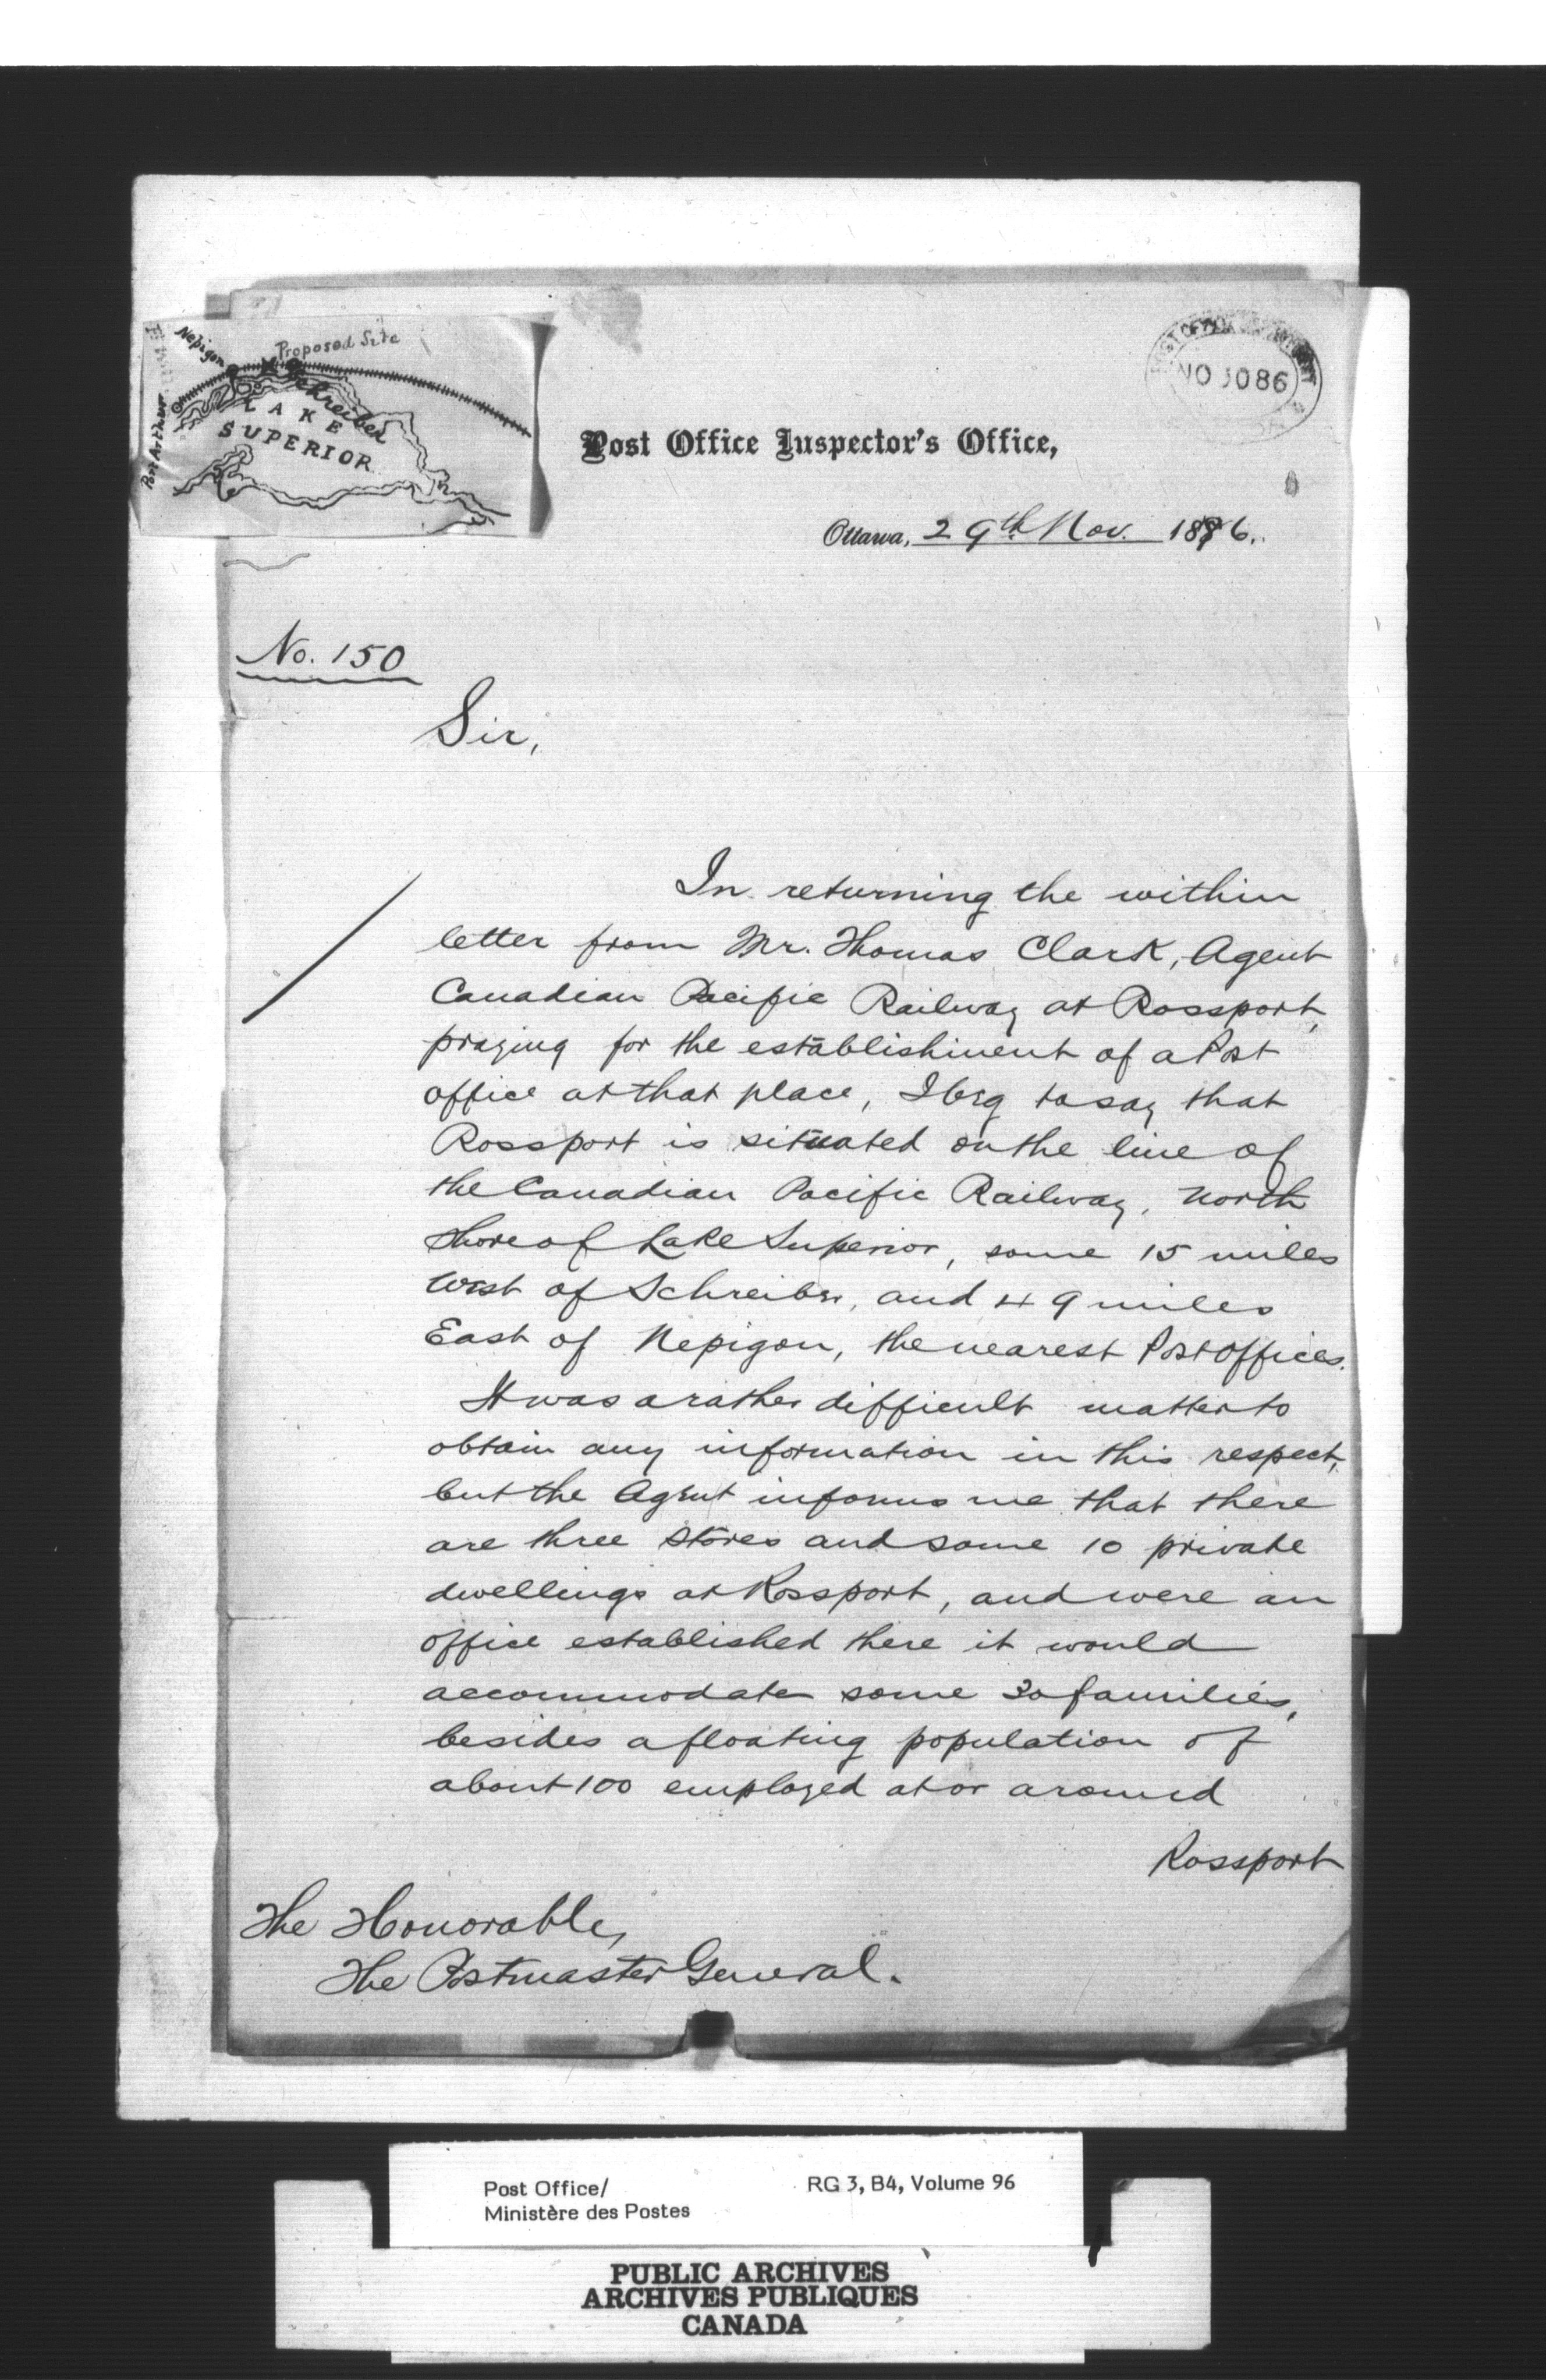 Nepigon
Proposed Site
Schreiber
Port Arthur
LAKE
SUPERIOR
NO 3086
Post Office Inspector's Office,
Ottawa, 29th Nov. 1886.
No. 150
Sir,
In returning the within
letter from Mr. Thomas Clark, Agent
Canadian Pacific Railway at Rossport,
praying for the establishment of a Post
office at that place, I beg to say that
Rossport is situated on the line of
the Canadian Pacific Railway, North
shore of Lake Superior, some 15 miles
West of Schreiber, and 49 miles
East of Nepigon, the nearest Post offices.
It was a rather difficult matter to
obtain any information in this respect,
but the Agent informs me that there
are three stores and some 10 private
dwellings at Rossport, and were an
office established there it would
accommodate some 30 families,
besides a floating population of
about 100 employed at or around
Rossport
The Honorable,
The Postmaster General.
Post Office/
Ministère des Postes
RG 3, B4, Volume 96
PUBLIC ARCHIVES
ARCHIVES PUBLIQUES
CANADA